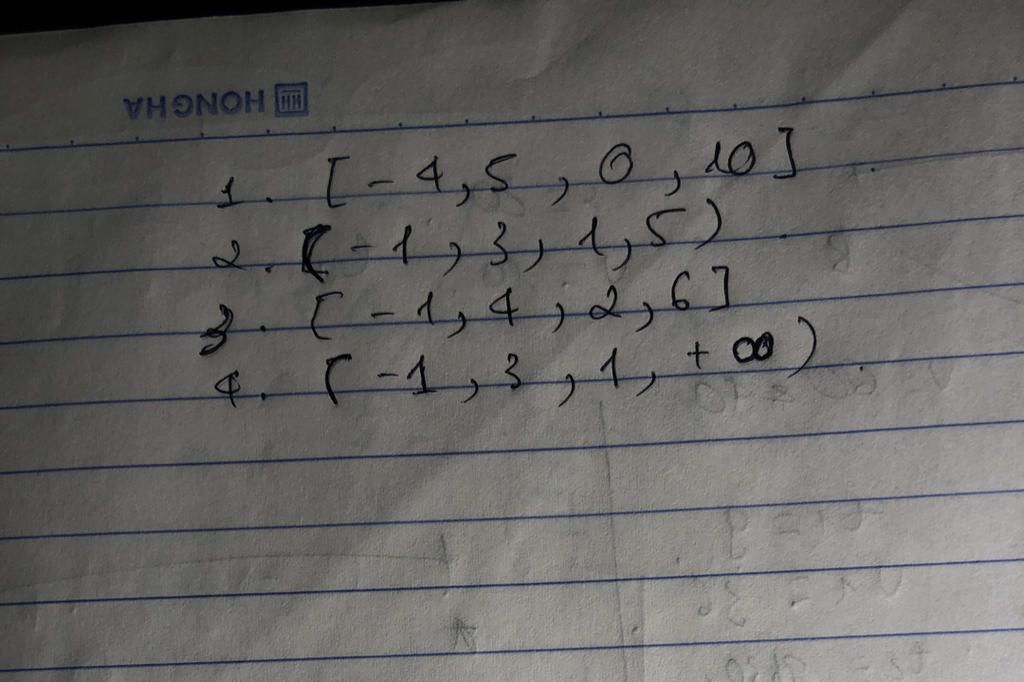 HONGHA
1. [-4,5,0,10]
2. (-1,3,1,5)
3. [-1,4,2,6]
4. (-1,3,1,+∞)